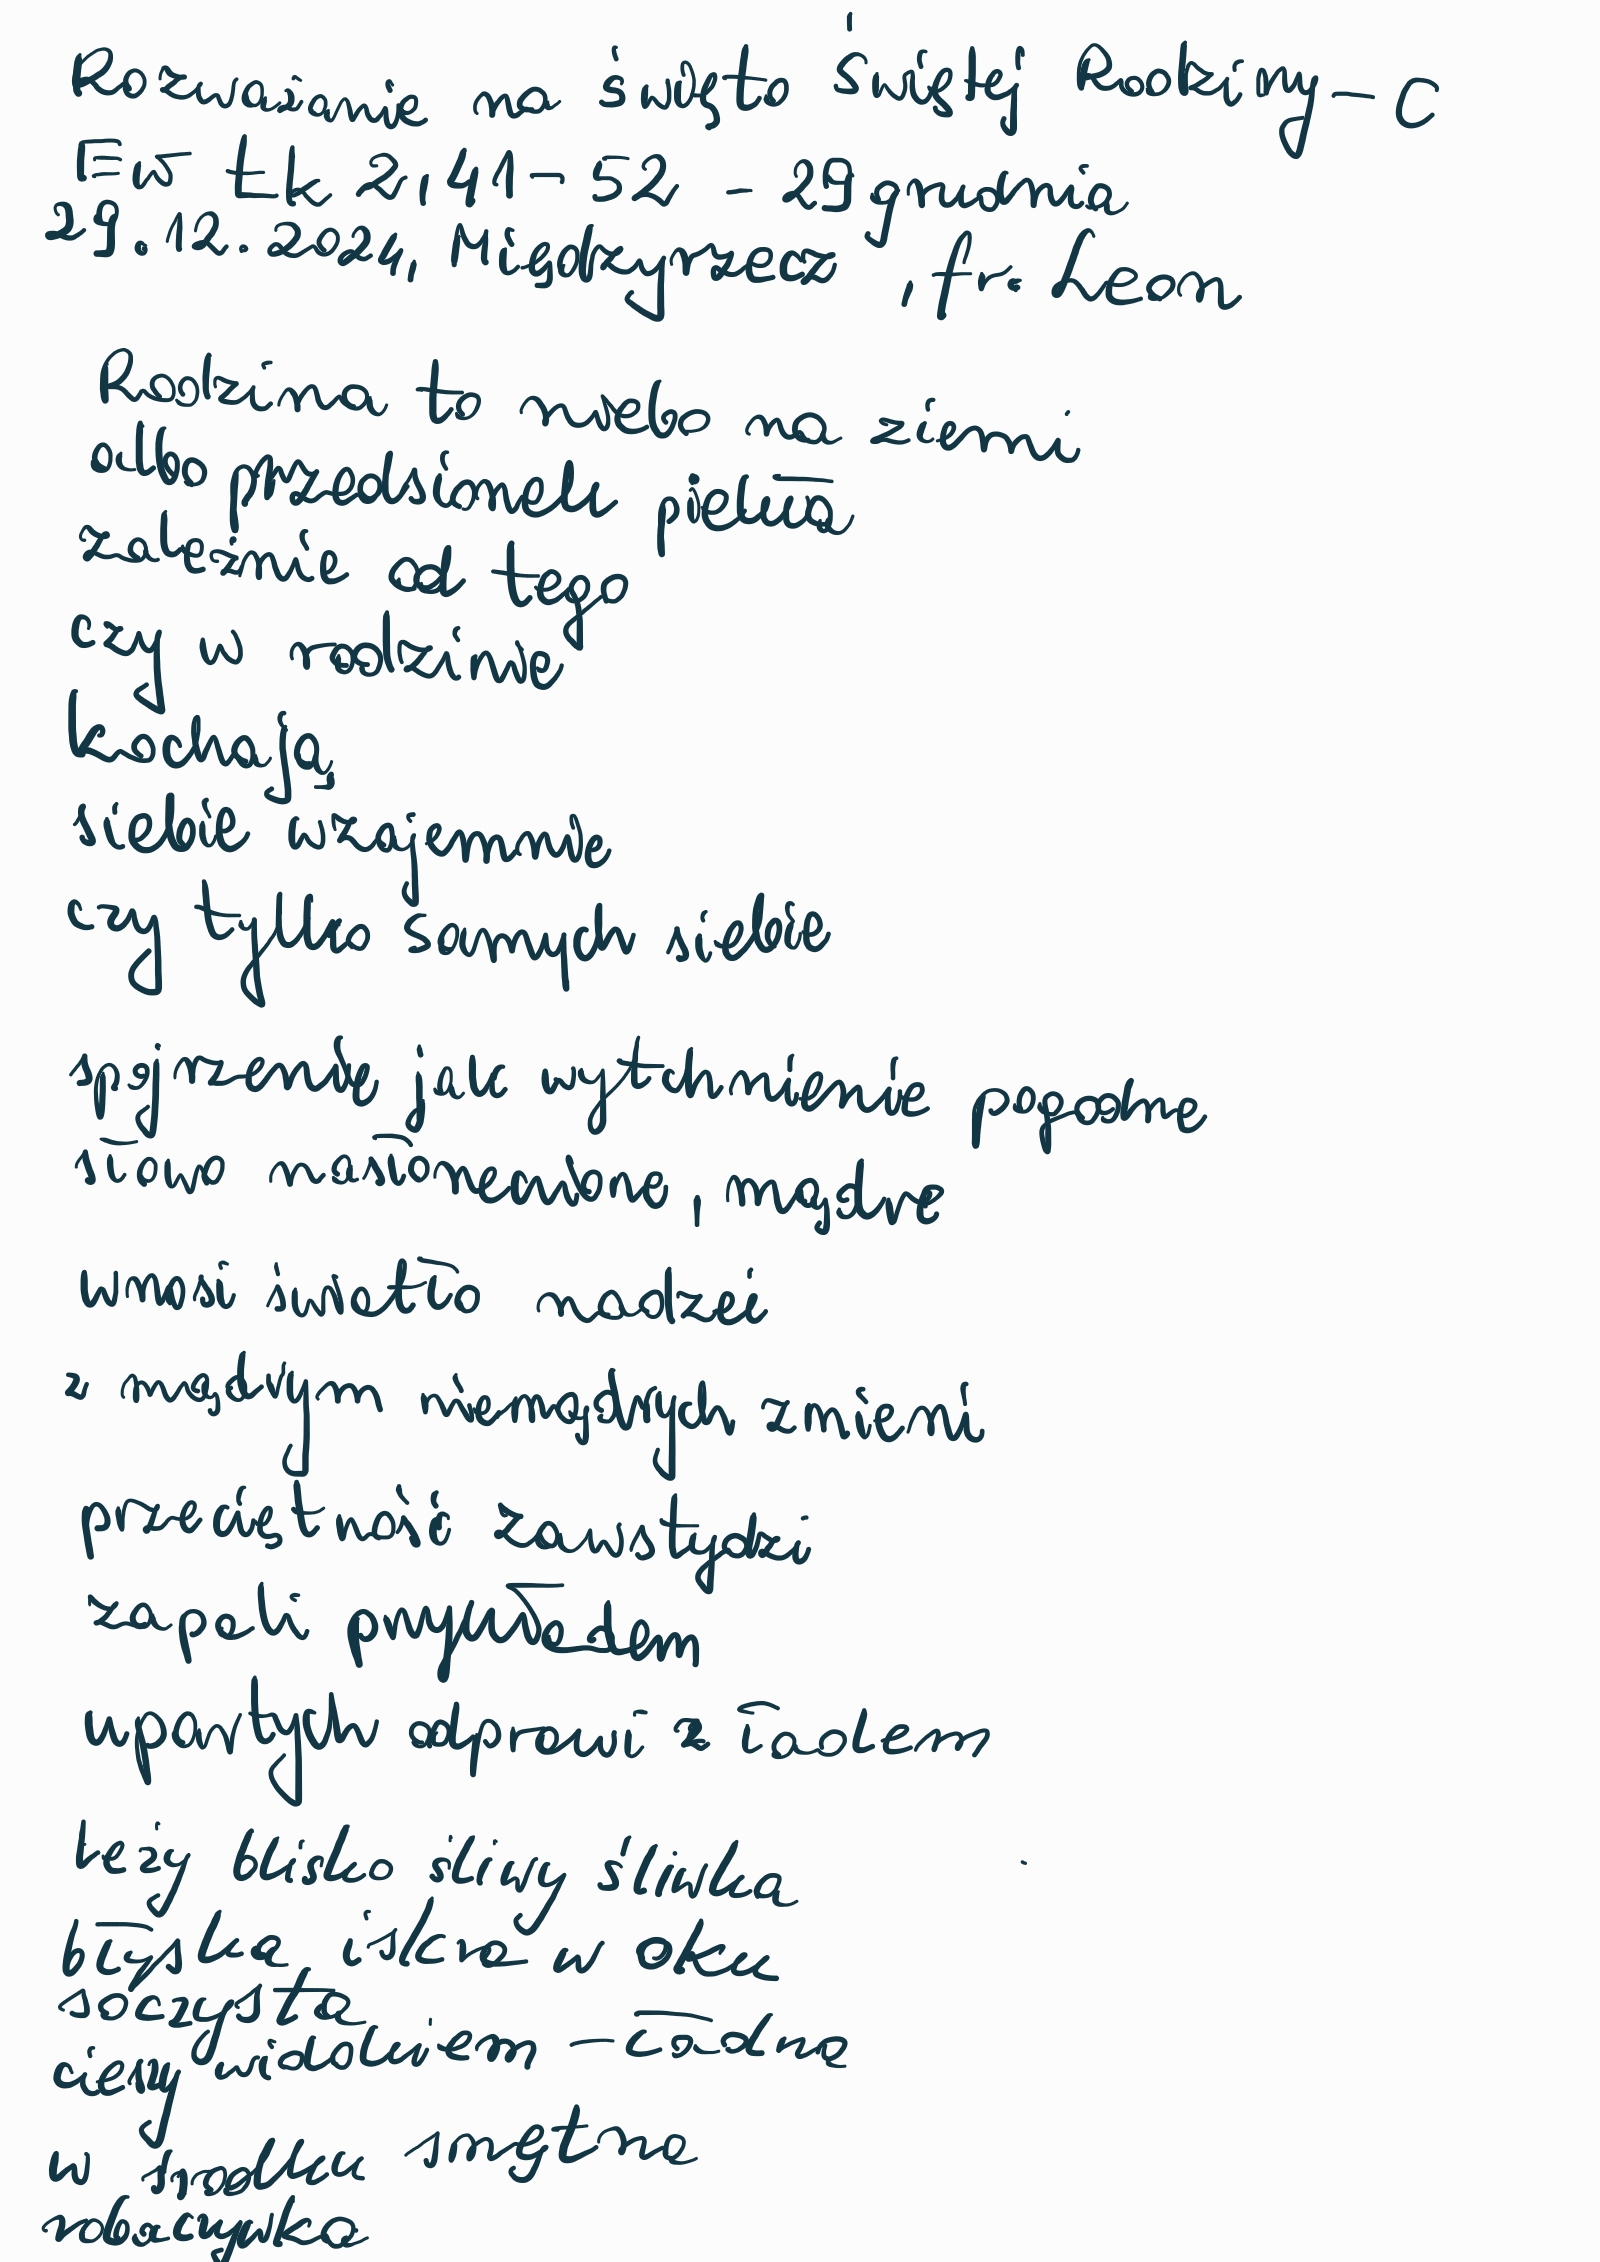 Rozważanie na święto Świętej Rodziny – C
Ew Łk 2,41-52 - 29 grudnia
29.12.2024, Międzyrzecz, fr. Leon
Rodzina to niebo na ziemi
albo przedsionek piekła
zależnie od tego
czy w rodzinie
kochają
siebie wzajemnie
czy tylko samych siebie
spojrzenie jak wytchnienie pogodne
słowo nasłonecznione, mądre
wnosi światło nadzei
z mądrym niemądrych zmieni
przeciętność zawstydzi
zapali przykładem
upartych odprawi z ładem
leży blisko śliwy śliwka
błyska iskra w oku
soczysta
cieszy widokiem – ładna
w środku smętna
robaczywka